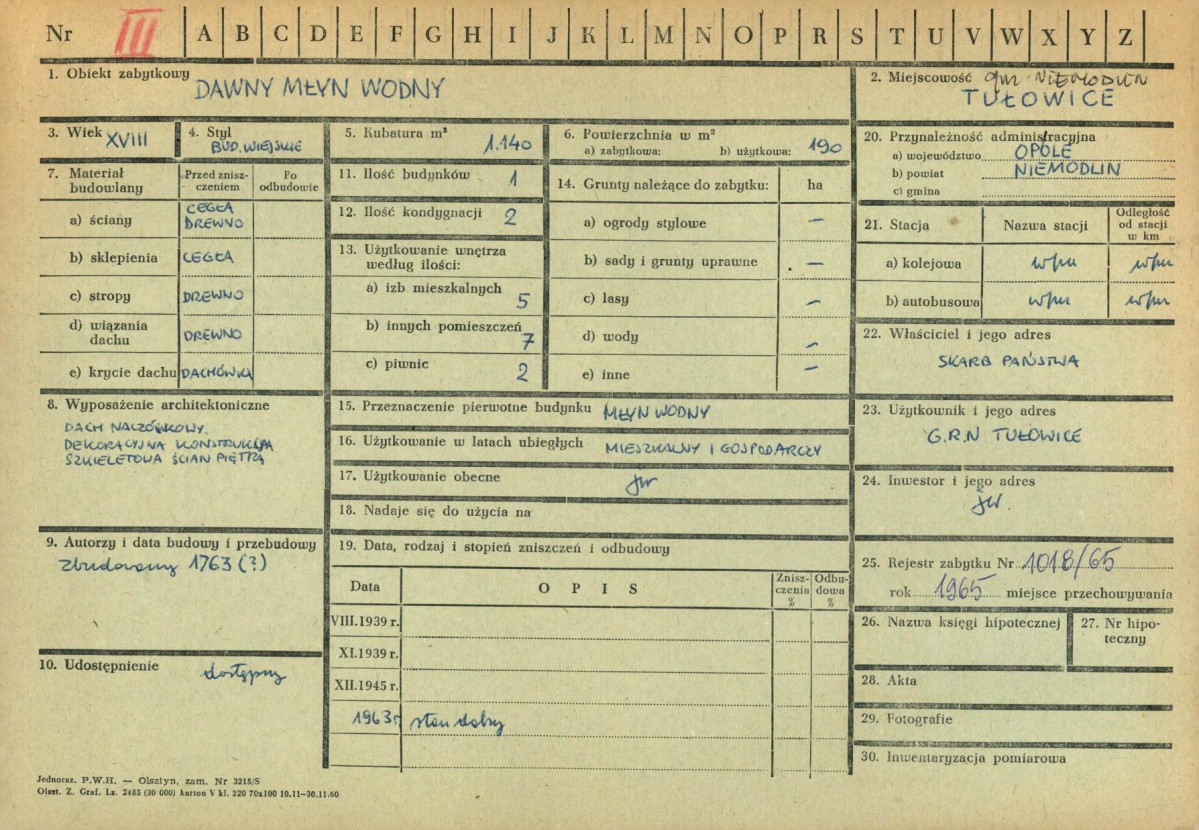 Nr III A B C D E F G H I J K L M N O P R S T U V W X Y Z
1. Obiekt zabytkowy DAWNY MŁYN WODNY
2. Miejscowość gm. NIEMODLIN
TUŁOWICE
3. Wiek XVIII
4. Styl
BUD. WIEJSKIE
5. Kubatura m³ 1.140
6. Powierzchnia w m²
a) zabytkowa: b) użytkowa: 190
7. Materiał budowlany
Przed zniszczeniem
Po odbudowie
a) ściany CEGŁA
DREWNO
b) sklepienia CEGŁA
c) stropy DREWNO
d) wiązania dachu DREWNO
e) krycie dachu DACHÓWKA
8. Wyposażenie architektoniczne
DACH NACZÓŁKOWY.
DEKORACYJNA KONSTRUKCJA
SZKIELETOWA ŚCIAN PIĘTRA
9. Autorzy i data budowy i przebudowy
zbudowany 1763 (?)
10. Udostępnienie dostępny
11. Ilość budynków 1
12. Ilość kondygnacji 2
13. Użytkowanie wnętrza
według ilości:
a) izb mieszkalnych 5
b) innych pomieszczeń 7
c) piwnic 2
14. Grunty należące do zabytku: ha
a) ogrody stylowe –
b) sady i grunty uprawne –
c) lasy –
d) wody –
e) inne –
15. Przeznaczenie pierwotne budynku MŁYN WODNY
16. Użytkowanie w latach ubiegłych MIESZKALNY I GOSPODARCZY
17. Użytkowanie obecne jw
18. Nadaje się do użycia na
19. Data, rodzaj i stopień zniszczeń i odbudowy
Data O P I S Zniszczenia % Odbudowa %
VIII.1939 r.
XI.1939 r.
XII.1945 r.
1963r stan dobry
20. Przynależność administracyjna
a) województwo OPOLE
b) powiat NIEMODLIN
c) gmina
21. Stacja Nazwa stacji Odległość od stacji w km
a) kolejowa w/m w/m
b) autobusowa w/m w/m
22. Właściciel i jego adres
SKARB PAŃSTWA
23. Użytkownik i jego adres
G.R.N TUŁOWICE
24. Inwestor i jego adres
jw.
25. Rejestr zabytku Nr 1018/65
rok 1965 miejsce przechowywania
26. Nazwa księgi hipotecznej
27. Nr hipoteczny
28. Akta
29. Fotografie
30. Inwentaryzacja pomiarowa
Jednoraz. P.W.H. — Olsztyn, zam. Nr 3215/S
Olszt. Z. Graf. Lz. 2485 (30 000) karton V kl. 220 70x100 10.11—30.11.60